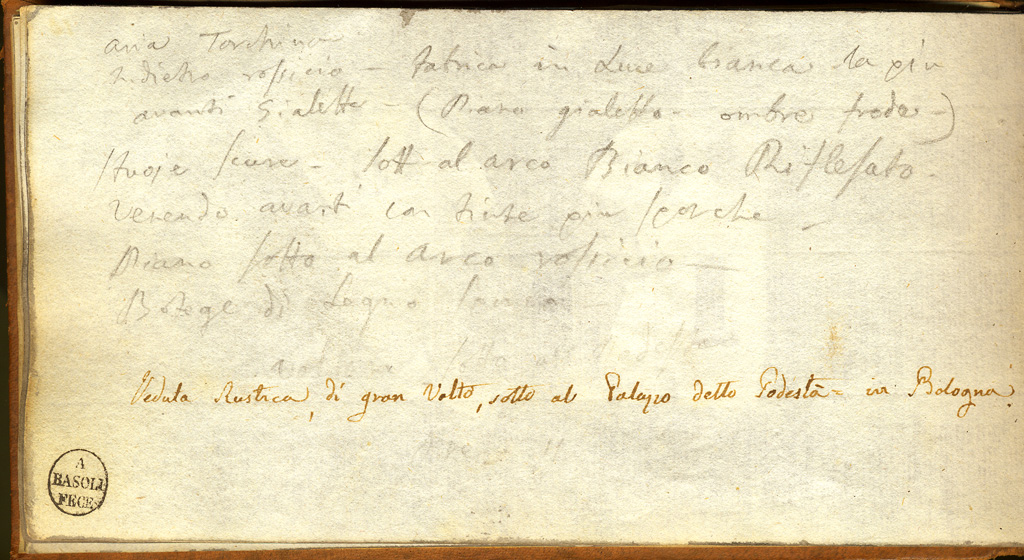 aria Torchina
Indietro rossicio - fabrica in Luce bianca la piu
avanti Gialetta - (Piano gialetto - ombre frede -)
stuoje scure - sott al arco Bianco Riflesato -
Venendo avanti con tinte piu sporche
Piano sotto al arco rossicio -
Botege di Legno scure -
sotto
Veduta Rustica, di gran Volto, sotto al Palazzo detto Podestà - in Bologna.
Ore 11
A
BASOLI
FECE